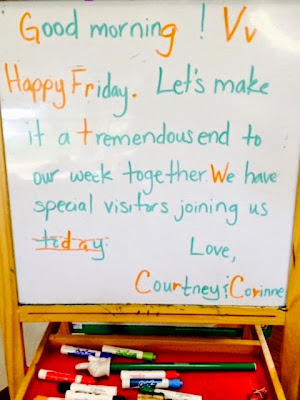 Good morning ! Vv
Happy Friday. Let's make
it a tremendous end to
our week together. We have
special visitors joining us
today.
Love,
Courtney & Corinne